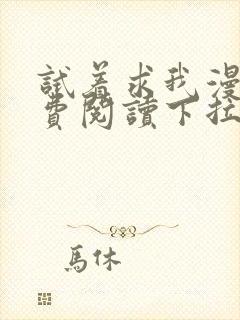 試着求我漫
費閱讀下拉
馬休